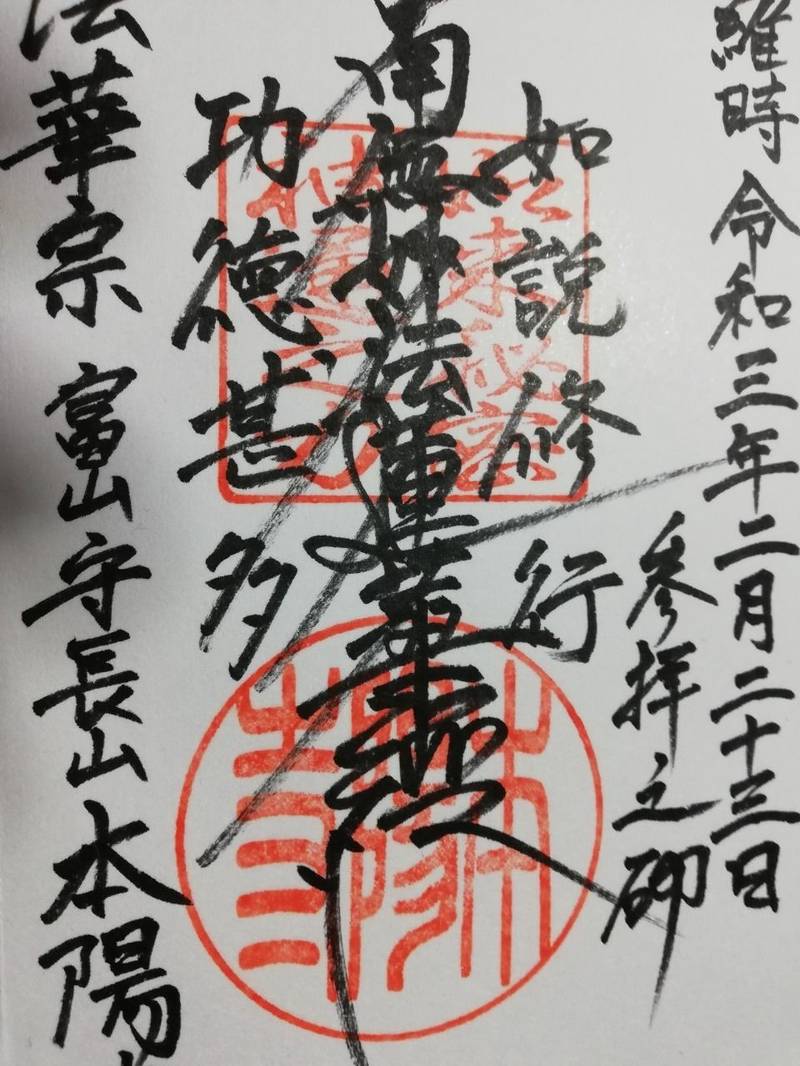 維時 令和三年二月二十三日
参拝之砌
如説修行
南無妙法蓮華経
功徳甚多
法華宗 富山守長山 本陽